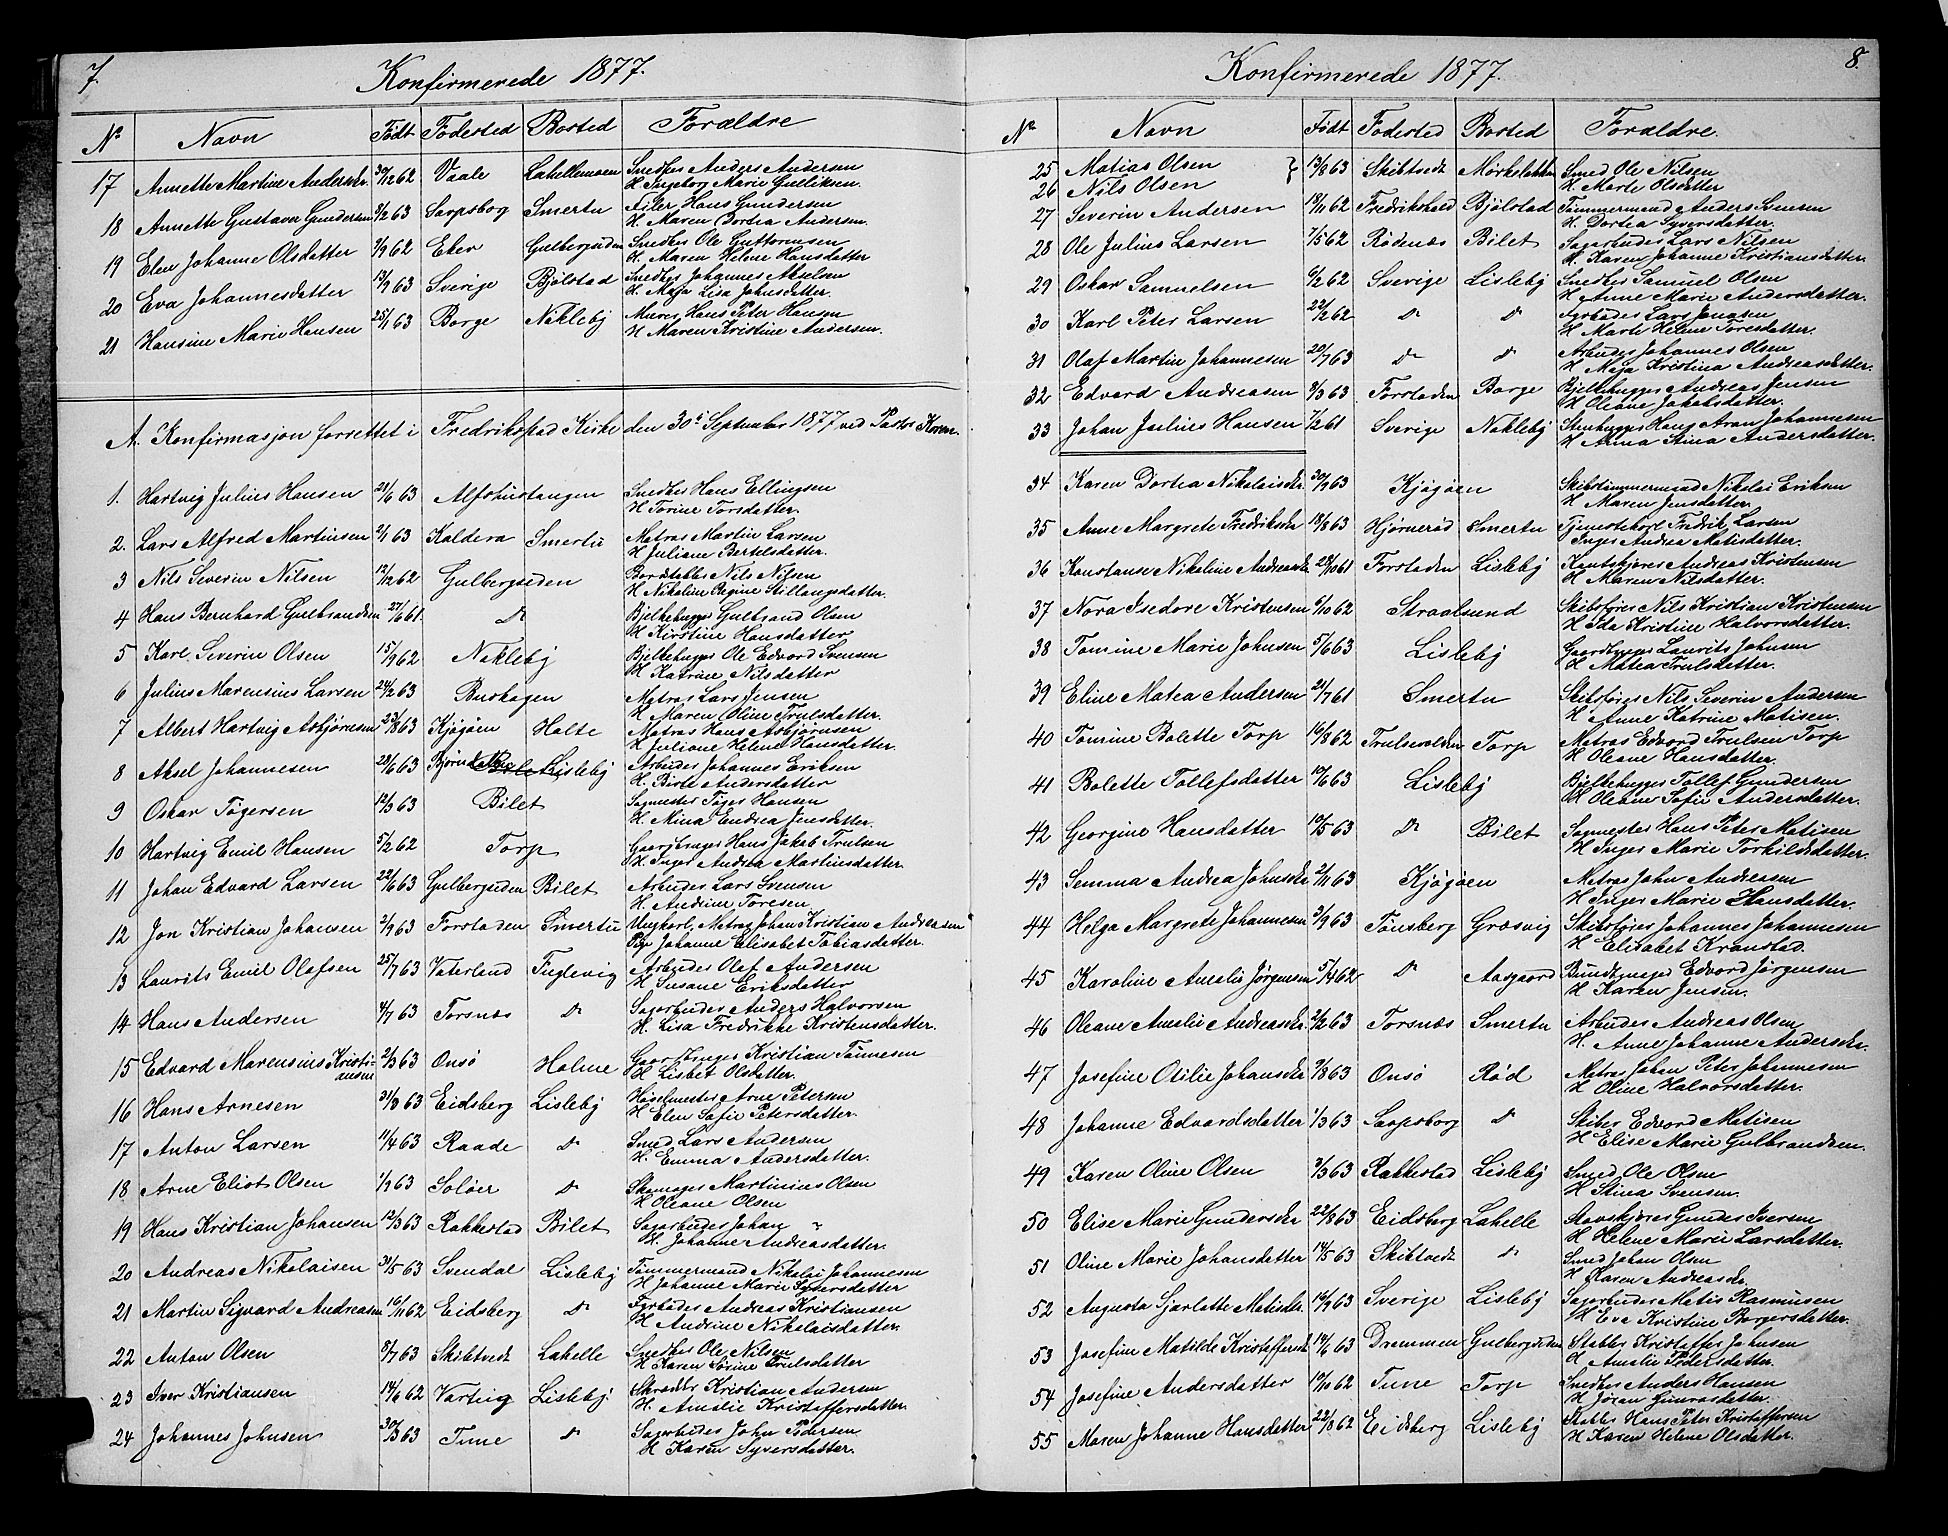 7.
Konfirmerede 1877.
No Navn Født Fødested Bosted Forældre
17 Annette Martine Andersdr. 30/12 62 Vaale Lahellemoen Snedker Anders Andersen
H. Ingeborg Marie Gulliksen.
18 Annette Gustava Gundersen 3/2 63 Sarpsborg Smertu Filer Hans Gundersen
H. Maren Bortea Andersen.
19 Elen Johanne Olsdatter 3/9 62 Eker Gulbergsiden Snedker Ole Guttormsen
H. Maren Helene Hansdatter
20 Eva Johannesdatter 13/9 63 Sverige Bjølstad Snedker Johannes Akselsen
H. Maja Lisa Johnsdatter.
21 Hansine Marie Hansen 25/1 63 Borge Nøkleby Murer Hans Peter Hansen
H Maren Kristine Andersen.
A. Konfirmasjon forrettet i Fredrikstad Kirke den 30te September 1877 ved Pastor Koren.
1. Hartvig Julius Hansen 21/6 63 Alfshustangen Snedker Hans Ellingsen
H Torine Torsdatter.
2. Lars Alfred Martinsen 2/1 63 Kaldera Smertu Matros Martin Larsen
H Juliane Bertelsdatter.
3 Nils Severin Nilsen 12/12 62 Gulbergsiden Bordstabler Nils Nilsen
H Nikoline Regine Stillaugsdatter.
4 Hans Bernhard Gulbrandsen 27/6 61. do Bjelkehugger Gulbrand Olsen
H Kirstine Hansdatter
5 Karl Severin Olsen 15/9 62 Nøkleby Bjelkehugger Ole Edvard Svensen
H Katrine Nilsdatter
6 Julius Marensius Larsen 24/2 63 Buskogen Matros Lars Jensen
H Maren Oline Trulsdatter.
7 Albert Hartvig Asbjørnsen 23/8 63 Kjøgøen Holte Matros Hans Asbjørnsen
H Juliane Helene Hansdatter.
8 Aksel Johannesen 28/6 63 Lisleby Arbeider Johannes Eriksen
H. Birte Andersdatter
9 Oskar Tøgersen 12/3 63 Bilet Sagmester Tøger Hansen
H. Mina Andrea Jensdatter.
10 Hartvig Emil Hansen 5/2 62 Torp Gaardbruger Hans Jakob Trulsen
H. Inger Andrea Martinsdatter.
11 Johan Edvard Larsen 22/6 63 Gulbergsiden Bilet Arbeider Lars Svensen
H. Andrine Toresen.
12 Jon Kristian Johansen 2/9 63 Forstaden Smertu Ungkarl, Matros Johan Kristian Andreasen
Pige Johanne Elisabet Tobiasdatter.
13 Laurits Emil Olafsen 25/7 63 Vaterland Fuglevig Arbeider Olaf Andersen
H Susane Eriksdatter
14 Hans Andersen 4/7 63 Torsnæs do Sagarbeider Anders Halvorsen
H. Lisa Fredrikke Kristensdatter.
15 Edvard Marensius Kristi-
ansen 2/3 63 Onsø Holme Gaardbruger Kristian Tønnesen
H Lisbet Olsdatter.
16 Hans Arnesen 31/3 63 Eidsberg Lisleby Høvelmester Arne Petersen
H Elen Sofie Petersdatter.
17 Anton Larsen 11/4 63 Raade do Smed Lars Andersen
H. Emma Andersdatter.
18 Arne Eliot Olsen 1/9 63 Soløer do Skomager Martinius Olsen
H Oleane Olsen
19 Hans Kristian Johansen 12/3 63 Rakkestad Bilet Sagarbeider Johan "
H. Johanne Andreasdatter.
20 Andreas Nikolaisen 31/5 63 Svendal Lisleby Tømmermand Nikolai Johannesen
H Johanne Marie Syversdatter
21 Martin Sigvard Andreasen 16/11 62 Eidsberg do Fyrbøder Andreas Kristiansen
H Andrine Nikolaisdatter.
22 Anton Olsen 8/7 63 Skibtvedt Lahelle Snedker Ole Nilsen
H Karen Sørine Trulsdatter
23 Iver Kristiansen 14/6 62 Varteig Lisleby Skrædder Kristian Andersen
H. Amalie Kristoffersdatter.
24 Johannes Johnsen 30/3 63 Tune do Sagarbeider John Pedersen
H Karen Syversdatter.
8.
Konfirmerede 1877.
No Navn Født Fødested Bosted Forældre.
25 Matias Olsen } 13/8 63 Skibtvedt Smed Ole Nilsen
26 Nils Olsen H. Marte Olsdatter
27 Severin Andersen 19/11 62 Fredrikshald Bjølstad Tømmermand Anders Svensen
H. Dortea Syversdatter.
28 Ole Julius Larsen 7/5 62 Rødenæs Bilet Sagarbeider Lars Nilsen
H. Karen Johanne Kristiansdatter.
29 Oskar Samuelsen 6/2 62 Sverige Lisleby Snedker Samuel Olsen
H. Anne Marie Andersdatter.
30 Karl Peter Larsen 22/2 62 do do Fyrbøder Lars Jonasen
H Marte Helene Toresdatter.
31 Olaf Martin Johannesen 20/7 63 do do Arbeider Johannes Olsen
H Maja Kristina Andreasdatter.
32 Edvard Andreasen 9/3 63 Forstaden Borge Bjelkehugger Andreas Jensen
H Oleane Jakobsdatter.
33 Johan Julius Hansen 7/2 61 Sverige Nøkleby Stenhugger Hans Aron Johannesen
H Anna Stina Andersdatter.
34 Karen Dortea Nikolaisdr 30/9 63 Kjøgøen Skibstømmermand Nikolai Eriksen
H Maren Jensdatter.
35 Anne Margrete Fredriksdr 18/8 63 Hjørnerød Smertu Tjenestekarl Fredrik Larsen
Inger Andrea Matisdatter.
36 Konstanse Nikoline Andreasdr. 29/10 61 Forstaden Lisleby Kantskjærer Andreas Kristensen
H. Maren Nilsdatter.
37 Nora Isedore Kristensen 6/10 62 Straalsund Skibsfører Nils Kristian Kristensen
H Ida Kristine Halvorsdatter.
38 Tomine Marie Johnsen 5/6 63 Lisleby Gaardbruger Laurits Johnsen
H Matea Trulsdatter.
39 Eline Matea Andersen 21/7 61 Smertu Skibsfører Nils Severin Andersen
H Anne Katrine Matisen.
40 Tomine Bolette Torp 16/8 62 Trulsvolden Torp Matros Edvard Trulsen Torp
H Oleane Hansdatter.
41 Bolette Tollefsdatter 10/6 63 Lisleby Bjelkehugger Tollef Gundersen
H Oleane Sofie Andersdatter.
42 Georgine Hansdatter 10/5 63 do Bilet Sagmester Hans Peter Matisen
H Inger Marie Torkildsdatter.
43 Semma Andrea Johnsdr 2/11 63 Kjøgøen Matros John Andreasen
H Inger Marie Hansdatter.
44 Helga Margrete Johannesen 3/9 63 Tønsberg Græsvig Skibsfører Johannes Johannesen
H Elisabet Kranstad.
45 Karoline Amalie Jørgensen 5/4 62 do Aasgaard Bundtmager Edvard Jørgensen
H Karen Jensen.
46 Oleane Amalie Andreasdr. 2/2 63 Torsnæs Smertu Arbeider Andreas Olsen
H. Anne Johanne Andersdr.
47 Josefine Otilie Johansdr 7/8 63 Onsø Rød Matros Johan Peter Johannesen
H Oline Halvorsdatter.
48 Johanne Edvardsdatter 1/3 63 Sarpsborg do Skiber Edvard Matisen
H Elise Marie Gulbrandsen.
49 Karen Oline Olsen 3/3 63 Rakkestad Lisleby Smed Ole Olsen
H Stina Svensen.
50 Elise Marie Gundersdr 22/8 63 Eidsberg Lahelle Stavskjærer Gunder Iversen
H Helene Marie Larsdatter.
51 Oline Marie Johansdatter 14/5 63 Skibtvedt do Smed Johan Olsen
H Karen Andreasdr.
52 Augusta Sjarlotte Matisdr. 14/9 63 Sverige Lisleby Sagarbeider Matis Rasmusen
H Eva Kristine Borgersdatter.
53 Josefine Matilde Kristoffersdr 14/6 63 Drammen Gulbergsiden Stabler Kristoffer Johnsen
H Amalie Pedersdatter.
54 Josefine Andersdatter 19/10 62 Tune Torp Snedker Anders Hansen
H Jøran Gunarsdatter.
55 Maren Johanne Hansdatter 22/8 62 Eidsberg Lisleby Stabler Hans Peter Kristoffersen
H Karen Helene Olsdatter.